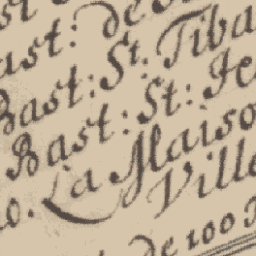 ast: de
Bast: St. Tiba
Bast: St: Je
0. La Maiso
Ville
de 100 T